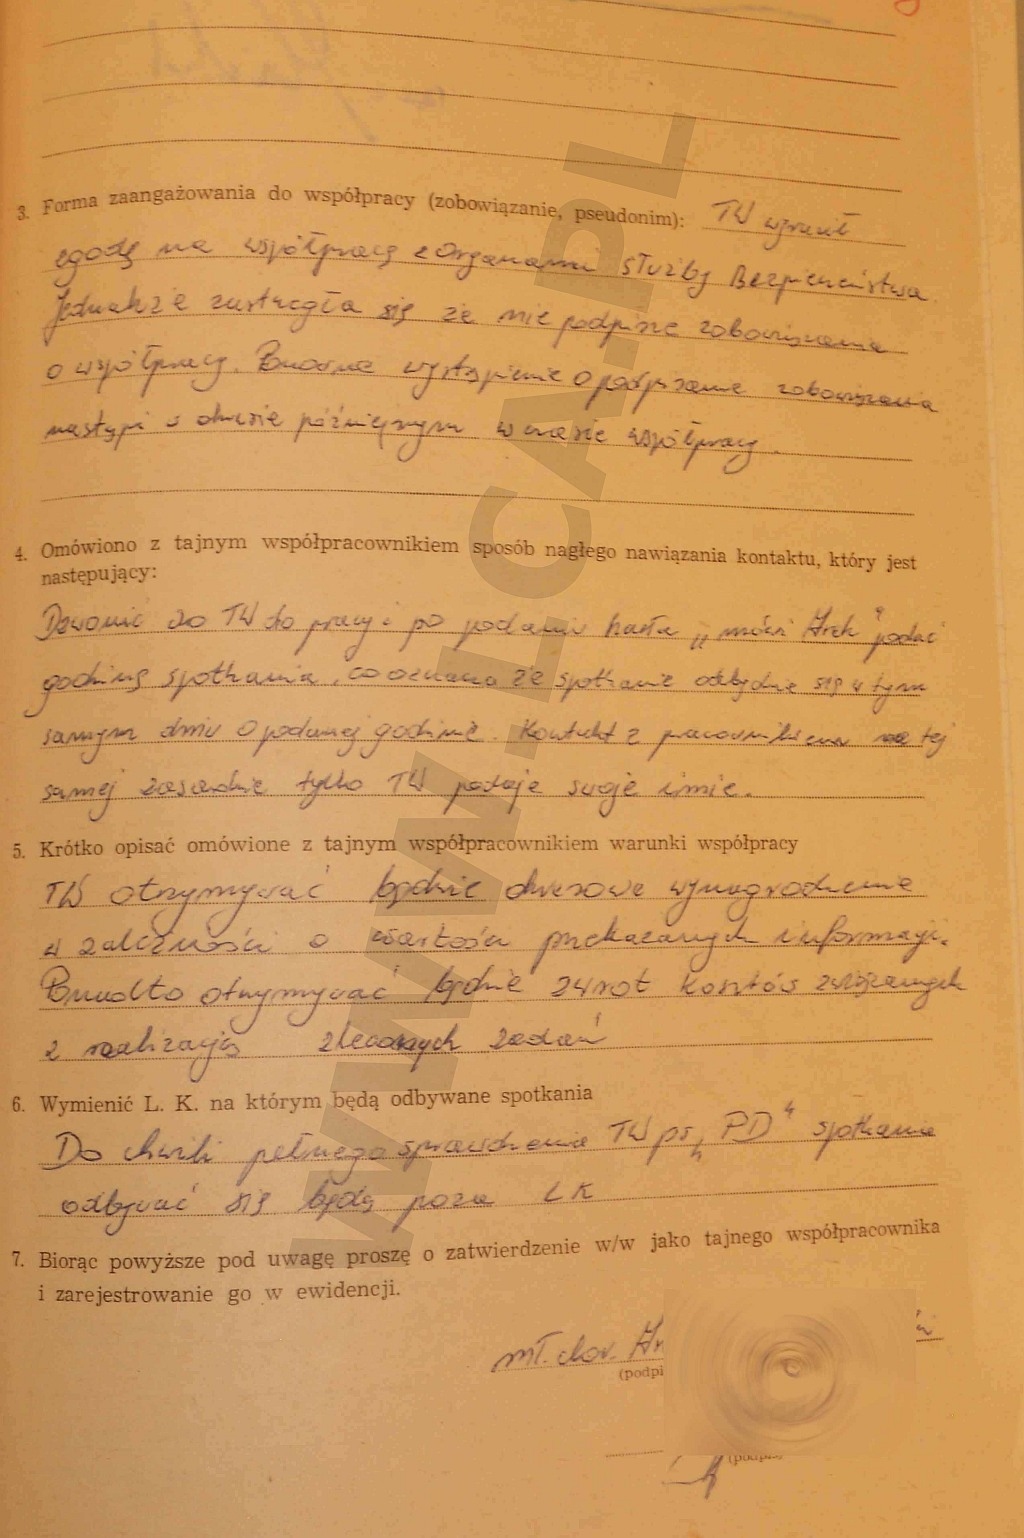 3. Forma zaangażowania do współpracy (zobowiązanie, pseudonim): TW wyraził
zgodę na współpracę z Organami Służby Bezpieczeństwa.
Jednakże zastrzegła się że nie podpisze zobowiązania
o współpracy. Ponowne wystąpienie o podpisanie zobowiązania
nastąpi w okresie późniejszym w czasie współpracy.
4. Omówiono z tajnym współpracownikiem sposób nagłego nawiązania kontaktu, który jest
następujący:
Dzwonić do TW do pracy i po podaniu hasła „mówi Arek" podać
godzinę spotkania, co oznacza że spotkanie odbędzie się w tym
samym dniu o podanej godzinie. Kontakt z pracownikiem na tej
samej zasadzie tylko TW podaje swoje imie.
5. Krótko opisać omówione z tajnym współpracownikiem warunki współpracy
TW otrzymywać będzie okresowe wynagrodzenie
w zależności o wartości przekazanych informacji.
Ponadto otrzymywać będzie zwrot kosztów związanych
z realizacją zleconych zadań
6. Wymienić L. K. na którym będą odbywane spotkania
Do chwili pełnego sprawdzenia TW ps „PD" spotkania
odbywać się będą poza LK
7. Biorąc powyższe pod uwagę proszę o zatwierdzenie w/w jako tajnego współpracownika
i zarejestrowanie go w ewidencji.
mł. chor.
(podpi
WWW.LCA.PL